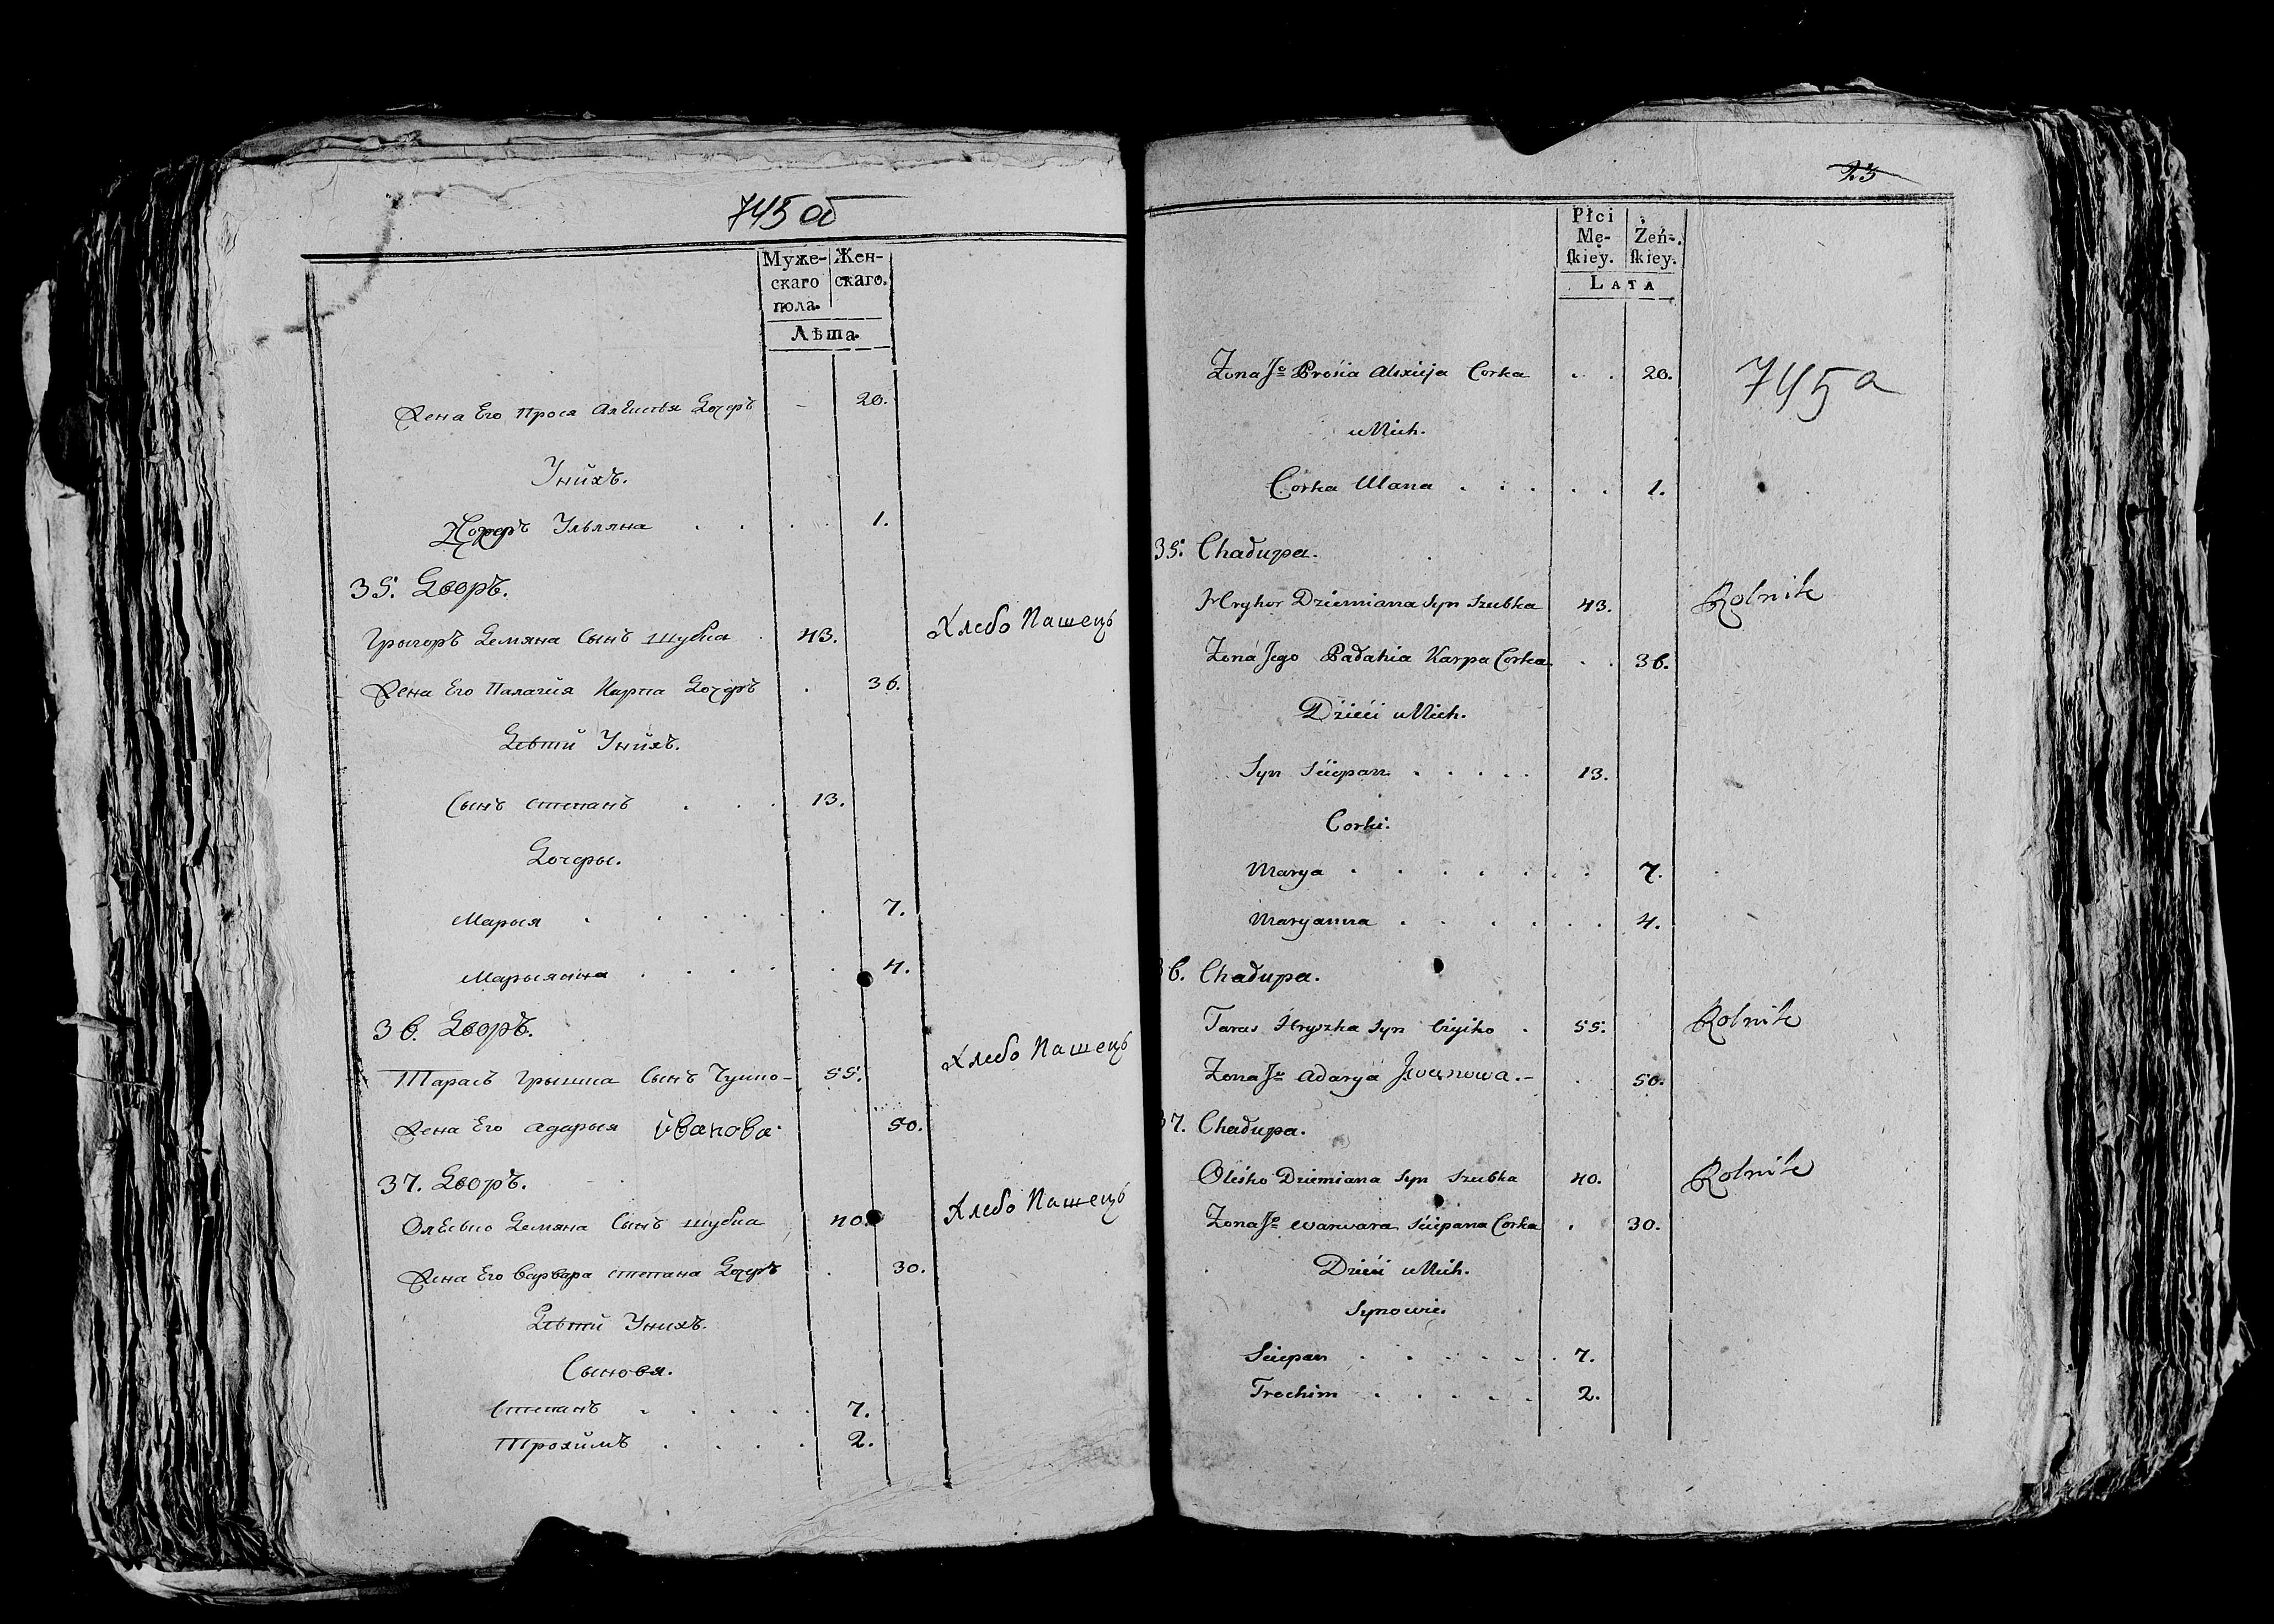 745 об
Муже-
скаго
пола.
Жен-
скаго.
Лѣта.
Жена Его Прося Алексѣя Дочеръ - 20.
Унйхъ.
Дочеръ Ульляна . . . . 1.
35. Дворъ.
Грыгоръ Демяна Сынъ шубка . 43. Хлебо Пашецъ
Жена Его Палагйя Карпа Дочеръ . 36.
Дѣтй Унйхъ.
Сынъ степанъ . . . 13.
Дочеры.
Марыя . . . . . 7.
Марыянна . . . . . 4.
36. Дворъ.
Тарасъ Грышка Сынъ 55. Хлебо Пашецъ
Жена Его адарыя йванова. 50.
37. Дворъ.
Олѣсько Демяна Сынъ шубка 40. Хлебо Пашецъ
Жена Его варвара степана Дочеръ . 30.
Дѣтй Унихъ.
Сыновя.
Степанъ . . . . . 7.
Трохймъ . . . . 2.
23
Płci
Mę-
skiey.
Żeń-
skiey.
LATA
Zona Jo Prosia Alexieja Corka . . 20.
745 a
u Nich.
Corka Ulana . . . . . 1.
35. Chadupa.
Hryhor Dziemiana Syn Szubka 43. Rolnik
Zona Jego Padahia Karpa Corka . . 36.
Dzieci u Nich.
Syn Sciepan . . . . . 13.
Corki.
Marya . . . . . . . 7.
Maryanna . . . . . . 4.
36. Chadupa.
Taras Hryszka Syn . 55. Rolnik
Zona Jo Adarya Jwanowa. - . 50.
37. Chadupa.
Olesko Dziemiana Syn Szubka 40. Rolnik
Zona Jo warwara Sciepana Corka . 30.
Dzieci u Nich.
Synowie.
Sciepan . . . . . . 7.
Trochim . . . . . 2.